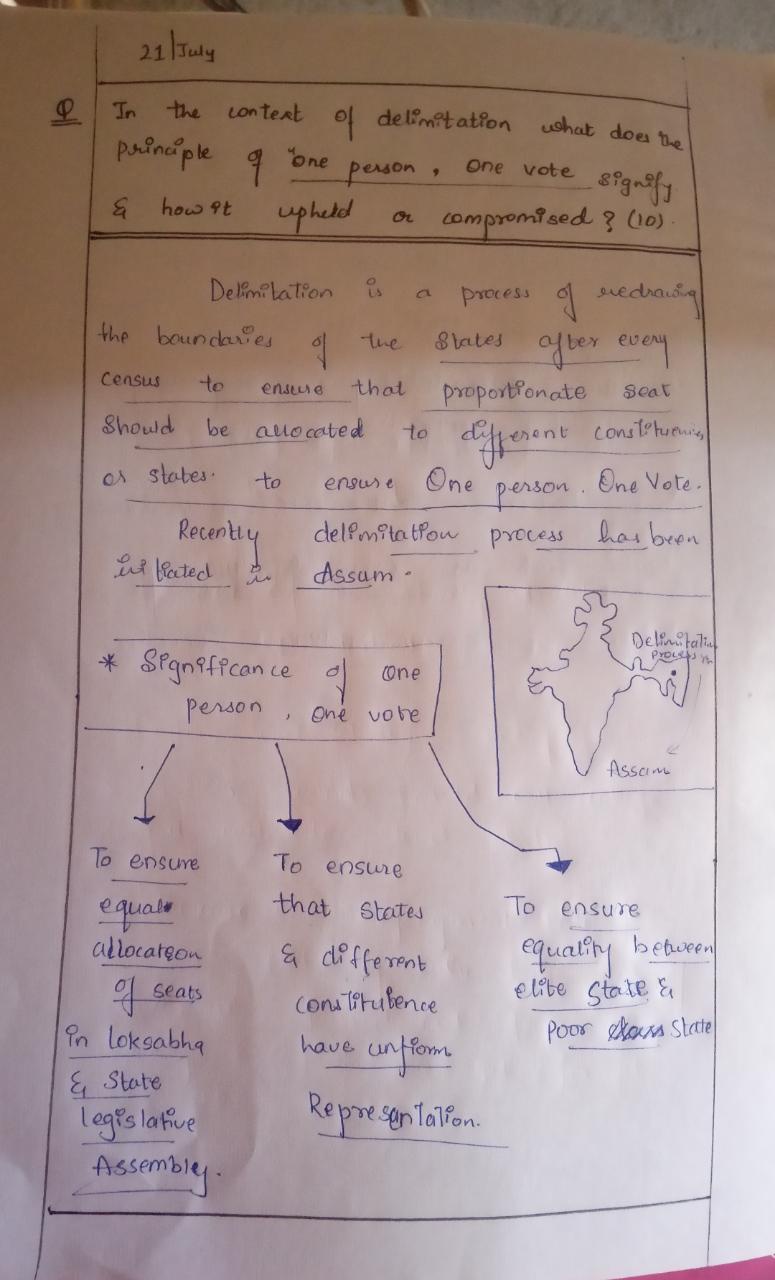 21/July
Q In the context of delimitation what does the
principle of "one person, one vote signify
& how it upheld or compromised? (10).
Delimitation is a process of redrawing
the boundaries of the States after every
census to ensure that proportionate seat
should be allocated to different constituencies
or states. to ensure One person. One Vote.
Recently delimitation process has been
initiated in Assam.
* Significance of one
person, one vote
Delimitation
process in
Assam
To ensure
equal
allocation
of seats
in loksabha
& State
legislative
Assembly.
To ensure
that states
& different
constitutence
have unform
Represantation.
To ensure
equality between
elite State &
Poor State